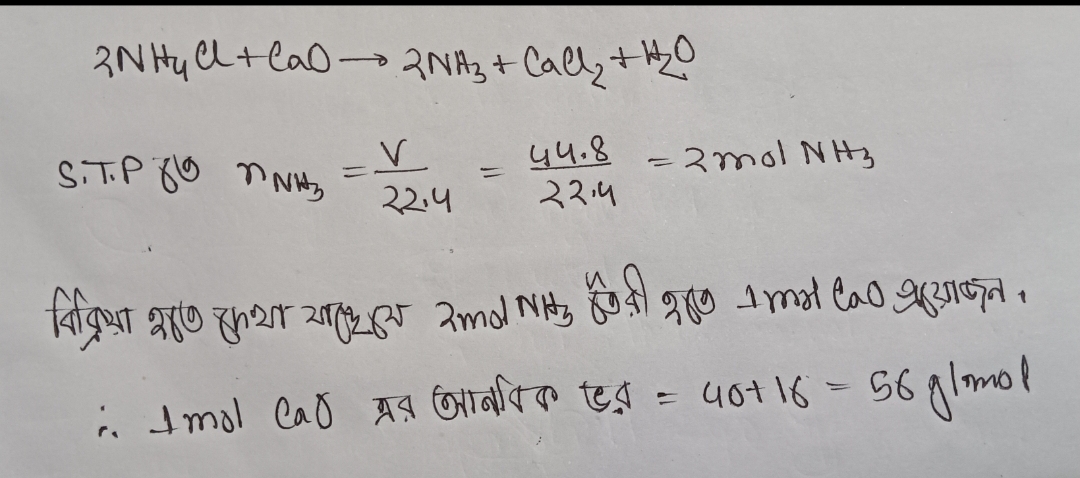 2NH₄Cl + CaO → 2NH₃ + CaCl₂ + H₂O
S.T.P তে n NH₃ = V/22.4 = 44.8/22.4 = 2 mol NH₃
বিক্রিয়া হতে দেখা যাচ্ছে যে 2 mol NH₃ তৈরী হতে 1 mol CaO প্রয়োজন।
∴ 1 mol CaO এর আনবিক ভর = 40+16 = 56 g/mol